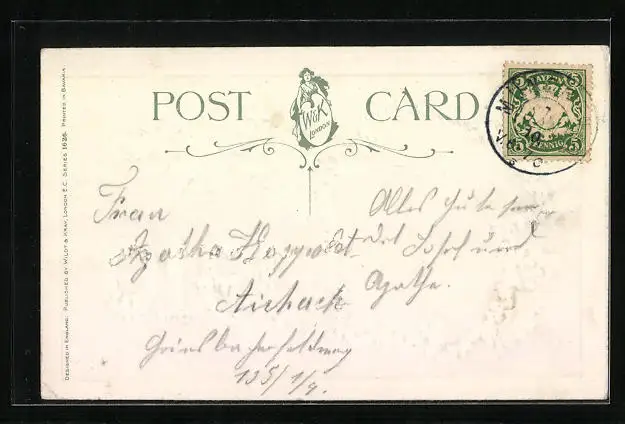 POST CARD
W&K
LONDON
DESIGNED IN ENGLAND. PUBLISHED BY WILDT & KRAY, LONDON E.C. SERIES 1626. PRINTED IN BAVARIA
BAYERN
5 5
PFENNIG
Frau
Agatha
Aichach
135/1/9.
Alles Gute
Josef und
Agathe.